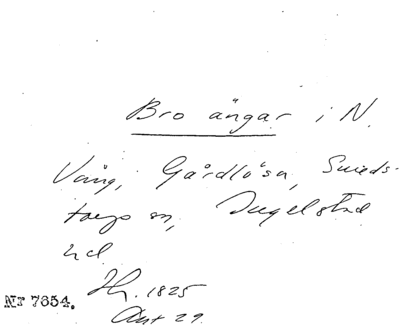 Bro ängar i N.
Vång, Gårdlösa, Smeds-
torps sn, Ingelstad
hd
Hh. 1825
Akt 29.
Nr 7654.